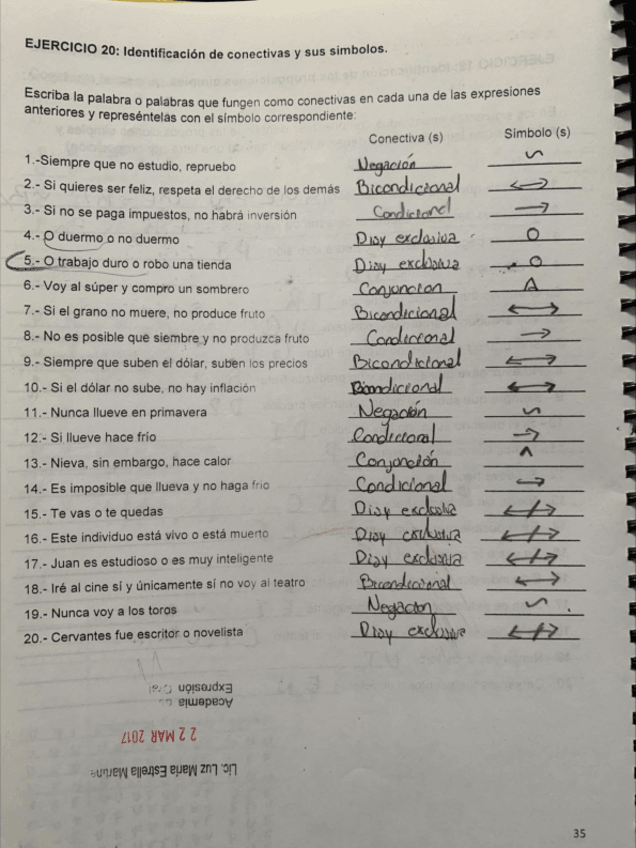 EJERCICIO 20: Identificación de conectivas y sus simbolos.
Escriba la palabra o palabras que fungen como conectivas en cada una de las expresiones
anteriores y represéntelas con el símbolo correspondiente:
Conectiva (s) Símbolo (s)
1.-Siempre que no estudio, repruebo Negación ~
2.- Si quieres ser feliz, respeta el derecho de los demás Bicondicional ↔
3.- Si no se paga impuestos, no habrá inversión Condicional →
4.- O duermo o no duermo Disy exclusiva O
5.- O trabajo duro o robo una tienda Disy exclusiva O
6.- Voy al súper y compro un sombrero Conjuncion Λ
7.- Si el grano no muere, no produce fruto Bicondicional ↔
8.- No es posible que siembre y no produzca fruto Condicional →
9.- Siempre que suben el dólar, suben los precios Bicondicional ↔
10.- Si el dólar no sube, no hay inflación Bicondicional ↔
11.- Nunca llueve en primavera Negación ~
12.- Si llueve hace frio Condicional →
13.- Nieva, sin embargo, hace calor Conjonción ^
14.- Es imposible que llueva y no haga frio Condicional →
15.- Te vas o te quedas Disy exclusiva ↮
16.- Este individuo está vivo o está muerto Disy exclusiva ↮
17.- Juan es estudioso o es muy inteligente Disy exclusiva ↮
18.- Iré al cine sí y únicamente sí no voy al teatro Bicondicional ↔
19.- Nunca voy a los toros Negacion ~
20.- Cervantes fue escritor o novelista Disy exclusiva ↮
Lic. Luz Maria Estrella
22 MAR 2017
Academia
Expresión
35